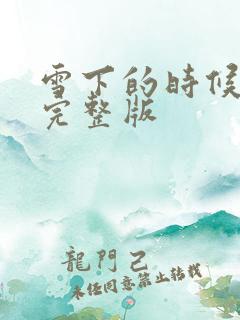 雪下的時候
完整版
龍門己
未經同意禁止轉載